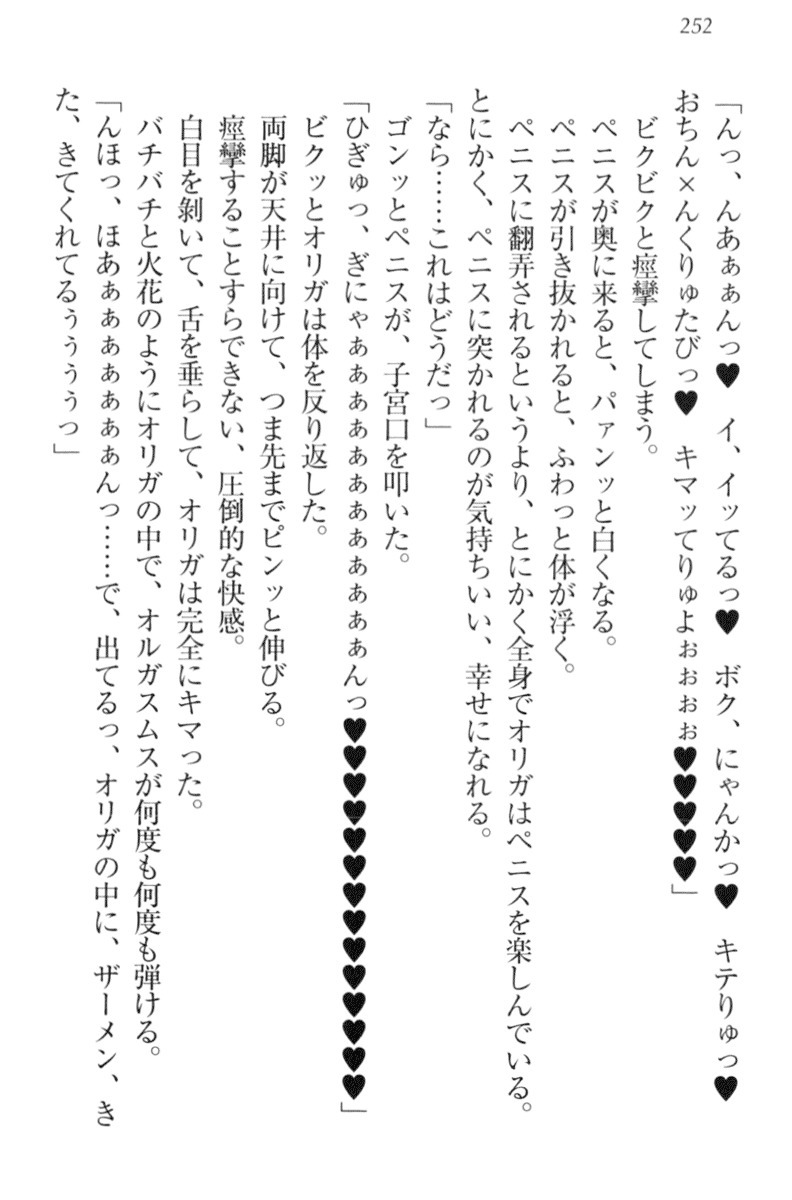 252
「んっ、んあぁぁんっ♥　イ、イッてるっ♥　ボク、にゃんかっ♥　キテりゅっ♥
おちん×んくりゅたびっ♥　キマッてりゅよぉぉぉぉ♥♥♥♥♥」
　ビクビクと痙攣してしまう。
　ペニスが奥に来ると、パァンッと白くなる。
　ペニスが引き抜かれると、ふわっと体が浮く。
　ペニスに翻弄されるというより、とにかく全身でオリガはペニスを楽しんでいる。
とにかく、ペニスに突かれるのが気持ちいい、幸せになれる。
「なら……これはどうだっ」
　ゴンッとペニスが、子宮口を叩いた。
「ひぎゅっ、ぎにゃぁぁぁぁぁぁぁぁぁぁぁぁんっ♥♥♥♥♥♥♥♥♥♥♥♥♥♥」
　ビクッとオリガは体を反り返した。
　両脚が天井に向けて、つま先までピンッと伸びる。
　痙攣することすらできない、圧倒的な快感。
　白目を剝いて、舌を垂らして、オリガは完全にキマった。
　バチバチと火花のようにオリガの中で、オルガスムスが何度も何度も弾ける。
「んほっ、ほあぁぁぁぁぁぁぁんっ……で、出てるっ、オリガの中に、ザーメン、き
た、きてくれてるぅぅぅぅっ」